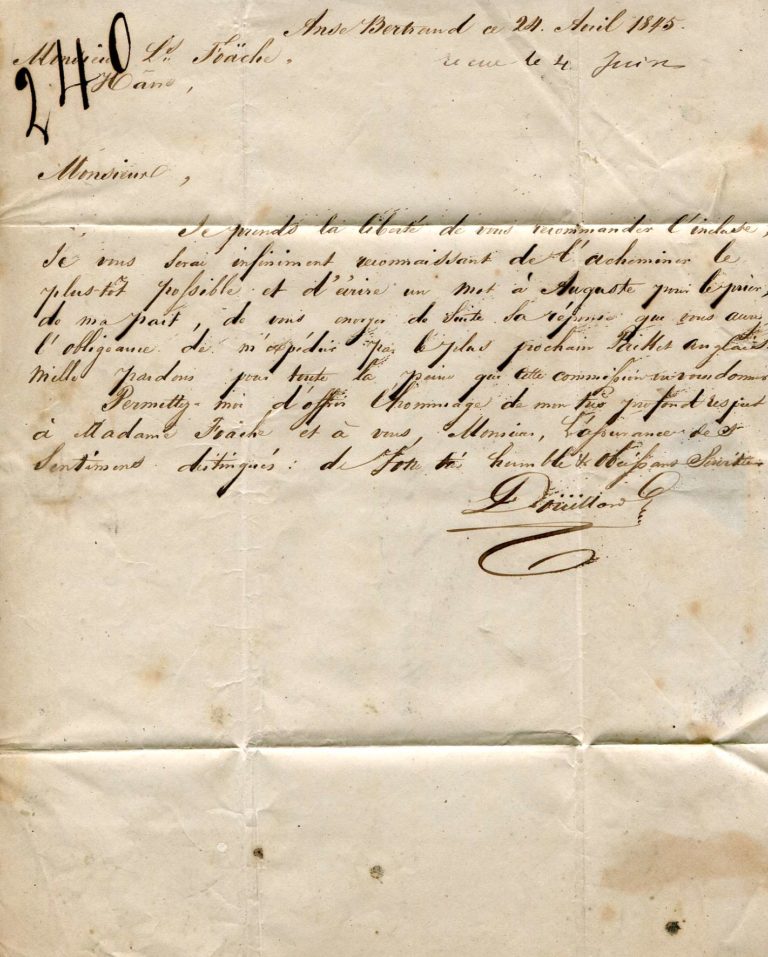 Anse Bertrand ce 24. Avil 1845.
Monsieur Ls Foäche.
recue le 4 Juin
Hâvre,
240
Monsieur,
Je prends la liberté de vous recommander l'incluse,
Je vous serai infiniment reconnaissant de l'acheminer le
plus-tôt possible et d'écrire un mot à Auguste pour le prier,
de ma part, de vous envoyer de suite sa réponse que vous aurez
l'obligeance de m'expédier par le plus prochain anglais
Mille pardons pour toute la peine que cette commission va vous donner
Permettez-moi d'offrir l'hommage de mon très profond respect
à Madame Foäche et à vous, Monsieur, l'assurance de
Sentiments distingués: de Votre très humble & obéissant Serviteur
Douillard